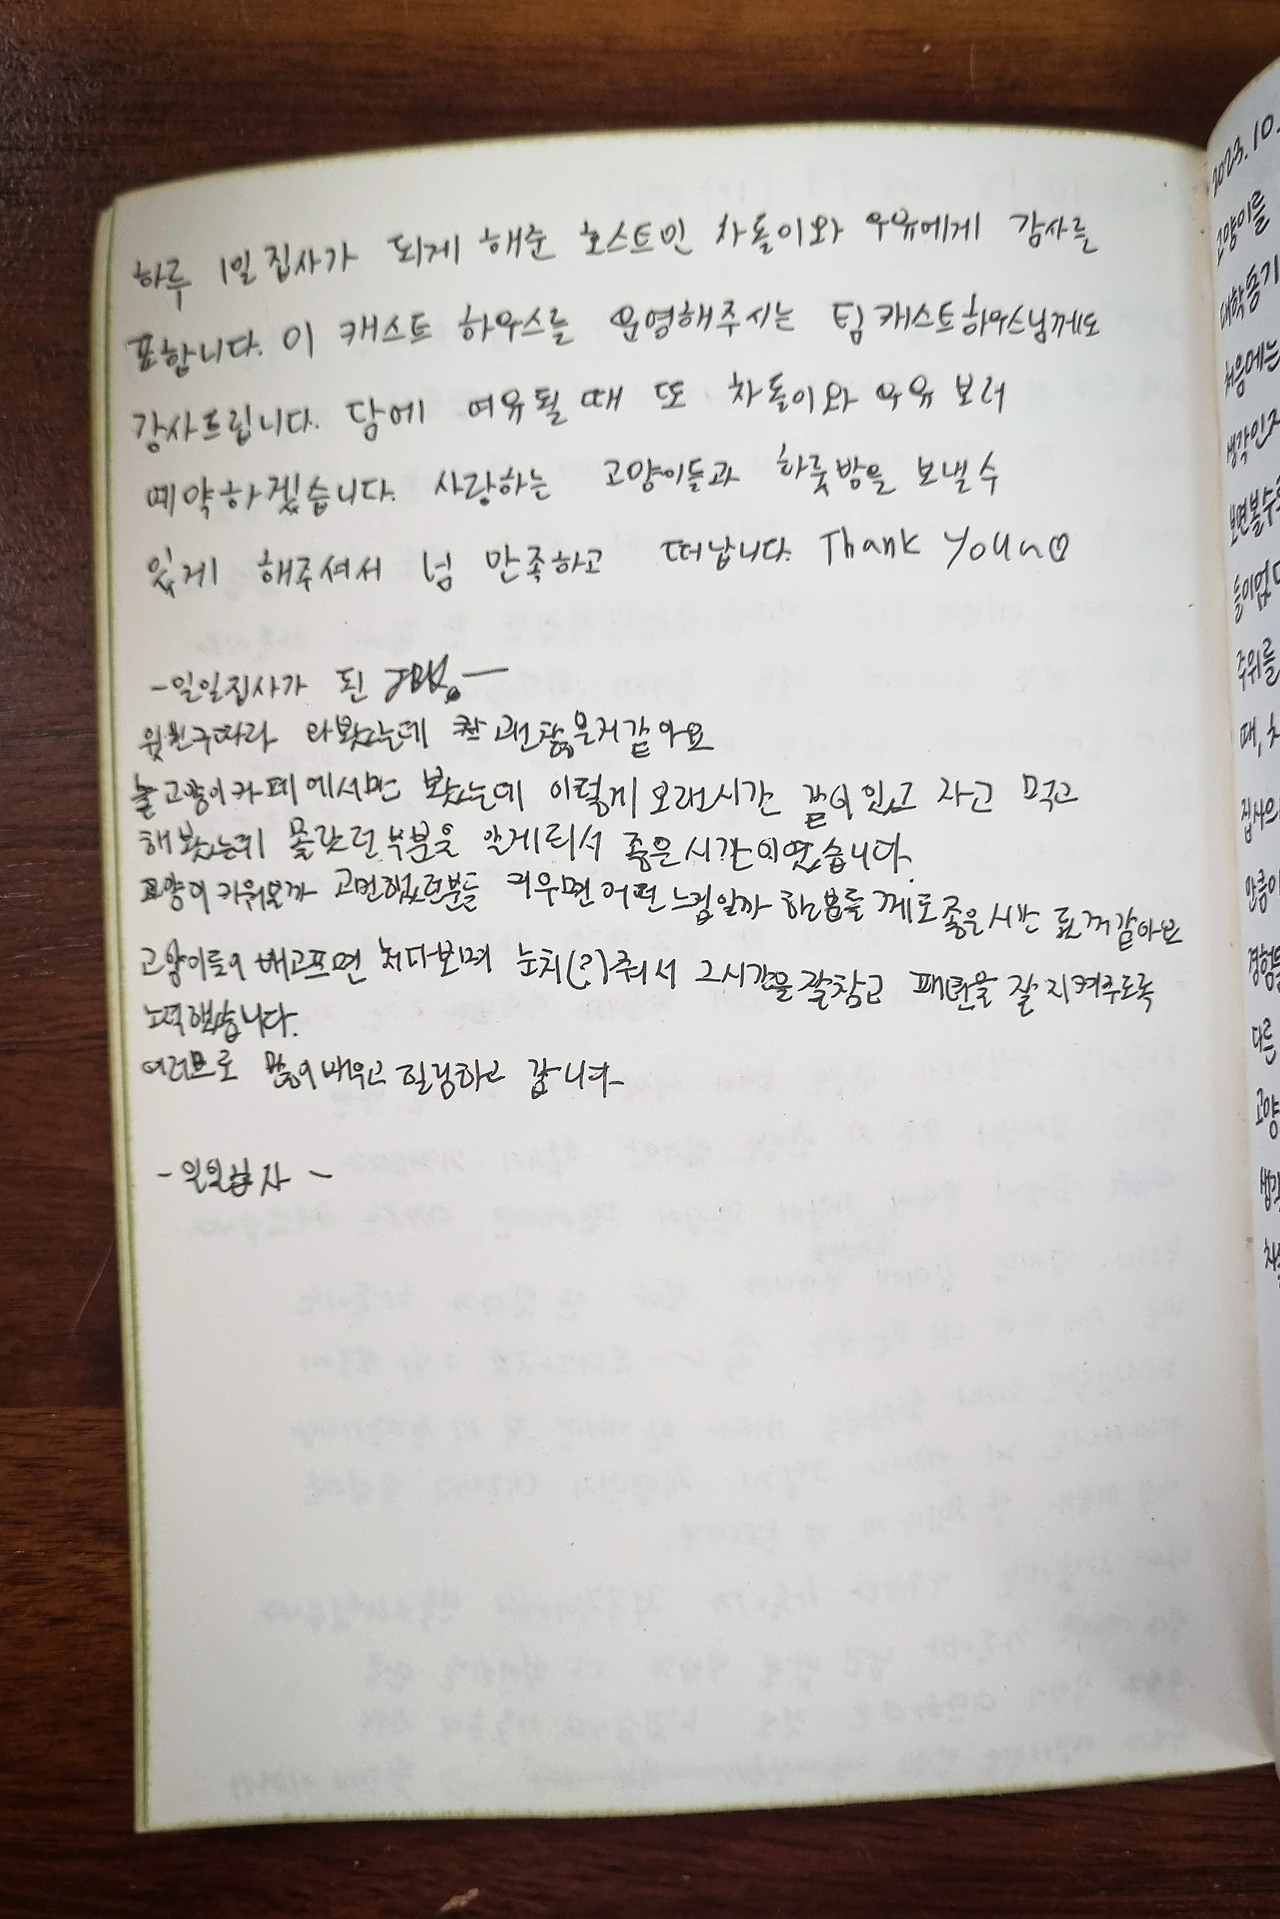 하루 1일 집사가 되게 해준 호스트인 차돌이와 우유에게 감사를
표합니다. 이 캐스트 하우스를 운영해주시는 팀캐스트하우스님께도
감사드립니다. 담에 여유될 때 또 차돌이와 우유 보러
예약하겠습니다. 사랑하는 고양이들과 하룻밤을 보낼 수
있게 해주셔서 넘 만족하고 떠납니다. Thank You
-일일집사가 된
윗친구따라 와봤는데 참 괜찮은거같아요
고양이카페에서만 봤는데 이렇게 오래시간 같이 있고 자고 먹고
해봤는데 몰랐던부분을 알게되서 좋은시간이였습니다.
고양이 키워볼까 고민했던분들 키우면어떤느낌일까 좋은시간 될꺼같아요
고양이들이 배고프면 쳐다보며 눈치(?)줘서 그시간을잘참고 패턴을 잘지켜주도록
노력했습니다.
여러므로 많이배우고 힐링하고 갑니다
-일일집사-
2023.10.
고양이를
대학동기
처음에는
생각인지
보면볼수록
들이없
주위를
때,
집사의
만큼이
경험
다른
고양
생각